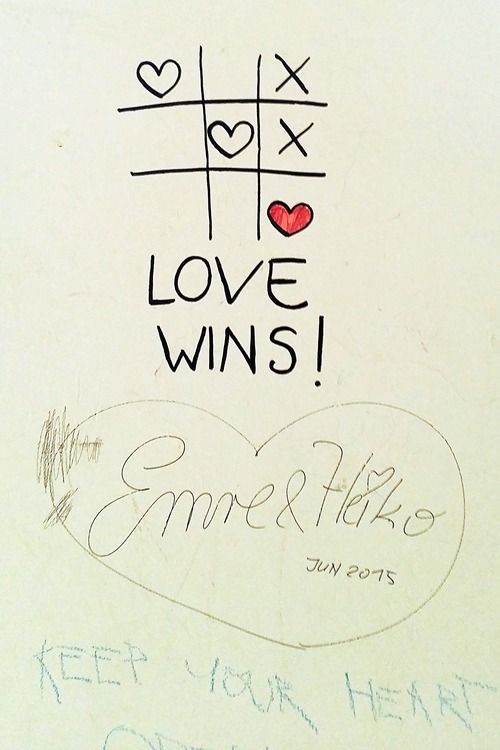 X
X
LOVE
WINS!
Emre & Heiko
JUN 2015
KEEP YOUR HEART